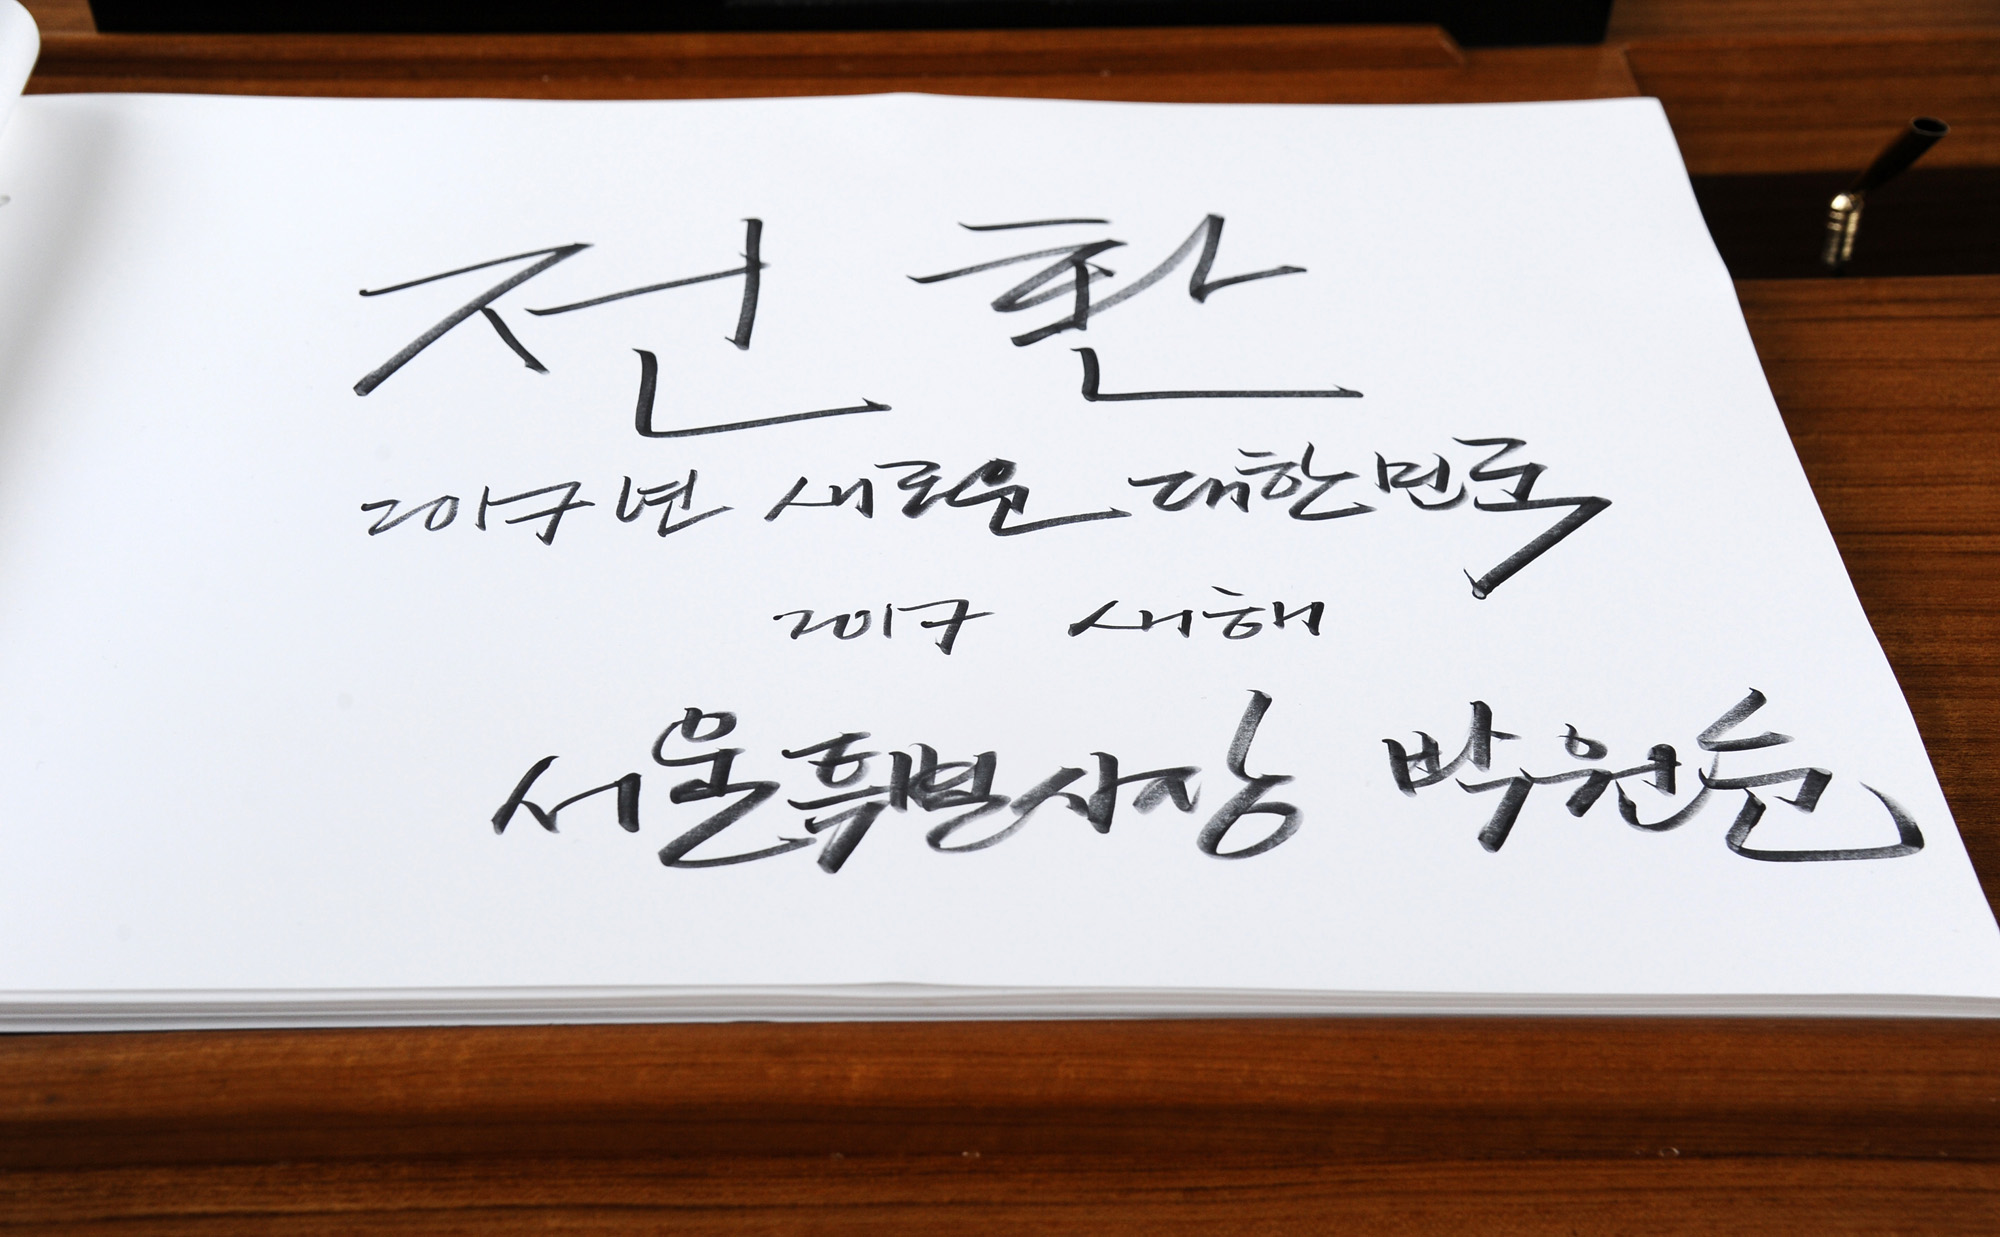 전환
2017년 새로운 대한민국
2017 새해
서울특별시장 박원순